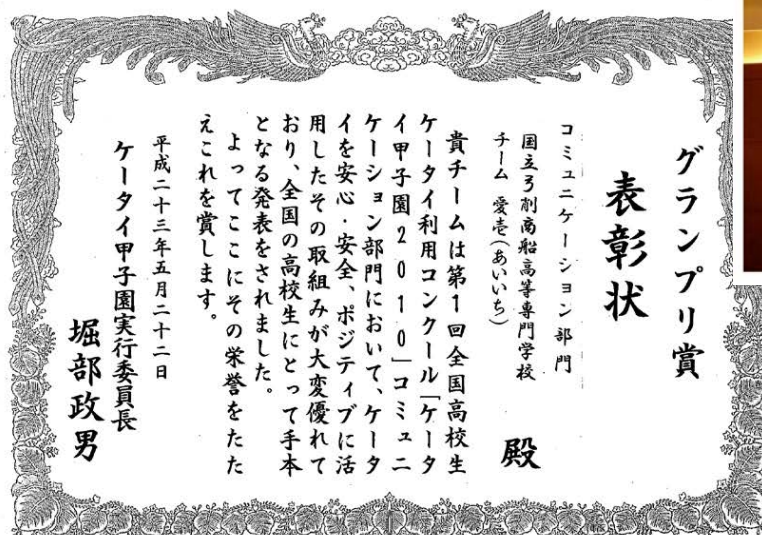 グランプリ賞
表彰状
コミュニケーション部門
国立弓削商船高等専門学校
チーム 愛壱(あいいち)
殿
貴チームは第1回全国高校生
ケータイ利用コンクール「ケータ
イ甲子園2010」コミュニ
ケーション部門において、ケータ
イを安心・安全、ポジティブに活
用したその取組みが大変優れて
おり、全国の高校生にとって手本
となる発表をされました。
よってここにその栄誉をたた
えこれを賞します。
平成二十三年五月二十二日
ケータイ甲子園実行委員長
堀部政男